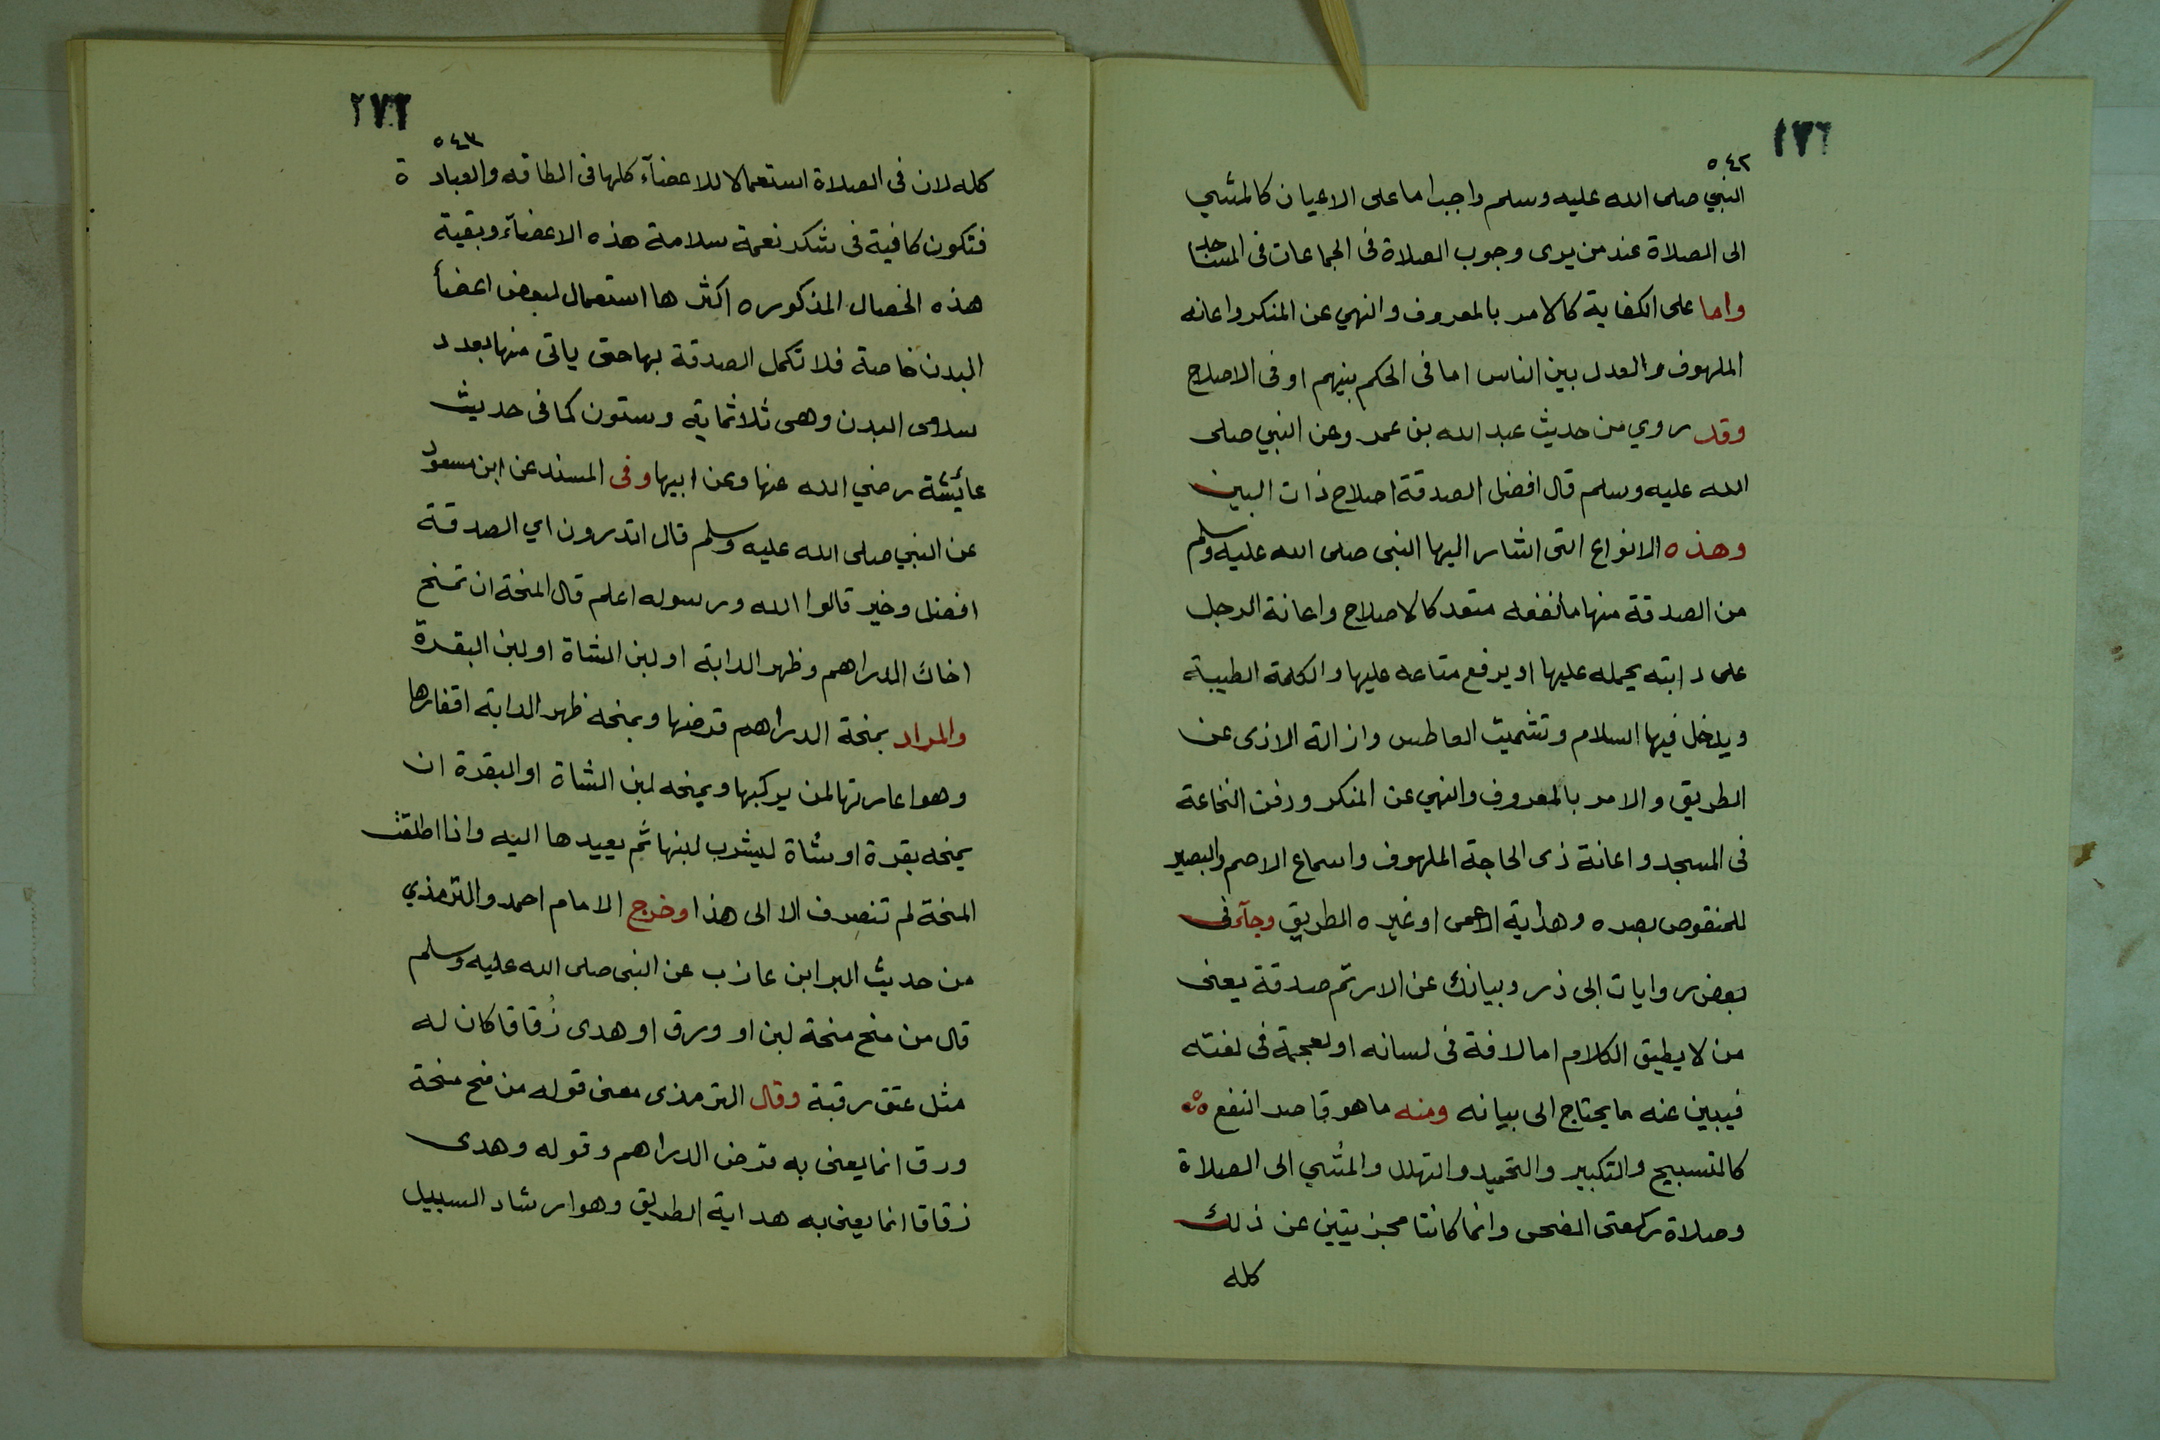 ٢٧٢
٥٤٢
النبي صلى الله عليه وسلم واجب اما على الاعيان كالمشي
الى الصلاة عند من يرى وجوب الصلاة فى الجماعات فى المساجد
واما على الكفاية كالامر بالمعروف والنهي عن المنكر واعانه
الملهوف والعدل بين الناس اما فى الحكم بينهم او فى الاصلاح
وقد روي من حديث عبد الله بن عمر وعن النبي صلى
الله عليه وسلم قال افضل الصدقة اصلاح ذات البين
وهذه الانواع التى اشار اليها النبى صلى الله عليه وسلم
من الصدقة منها ما نفعه متعد كالاصلاح واعانة الرجل
على دابته يحمله عليها او يرفع متاعه عليها والكلمة الطيبة
ويدخل فيها السلام وتشميت العاطس وازالة الاذى عن
الطريق والامر بالمعروف والنهي عن المنكر ودفن النخاعة
فى المسجد واعانة ذى الحاجة الملهوف واسماع الاصم والبصير
للمنقوص بصره وهداية الاعمى او غيره الطريق وجآء فى
بعض روايات ابى ذر وبيانك عن الارتم صدقة يعنى
من لا يطيق الكلام اما لافة فى لسانه او لعجمة فى لغته
فيبين عنه ما يحتاج الى بيانه ومنه ما هو قاصر النفع
كالتسبيح والتكبير والتحميد والتهلل والمشي الى الصلاة
وصلاة ركعتى الضحى وانما كانتا مجزيتين عن ذلك
كله
٢٧٢
٥٤٣
كله لان فى الصلاة استعمالا للاعضآء كلها فى الطاقه والعبادة
فتكون كافية فى شكر نعمة سلامة هذه الاعضآء وبقية
هذه الخصال المذكوره اكثرها استعمال لبعض اعضأ
البدن خاصة فلا تكمل الصدقة بها حتى ياتى منها بعدد
سلامى البدن وهى ثلاثمايه وستون كما فى حديث
عائيشة رضي الله عنها وعن ابيها وفى المسند عن ابن مسعود
عن النبي صلى الله عليه وسلم قال اتدرون اي الصدقة
افضل وخير قالوا الله ورسوله اعلم قال المنحة ان تمنح
اخاك الدراهم وظهر الدابة او لبن الشاة او لبن البقرة
والمراد بمنحة الدراهم قرضها وبمنحه ظهر الدابه اقفارها
وهو اعارتها لمن يركبها وبمنحه لبن الشاة او البقرة ان
يمنحه بقرة او شاة ليشرب لبنها ثم يعيدها اليه واذا اطلقت
المنحة لم تنصرف الا الى هذا وخرج الامام احمد والترمذي
من حديث البرا ابن عازب عن النبى صلى الله عليه وسلم
قال من منح منحة لبن او ورق او هدى زُقاقا كان له
مثل عتق رقبة وقال الترمذى معنى قوله من منح منحة
ورق انما يعنى به قرض الدراهم وقوله وهدى
زقاقا انما يعنى به هداية الطريق وهو ارشاد السبيل